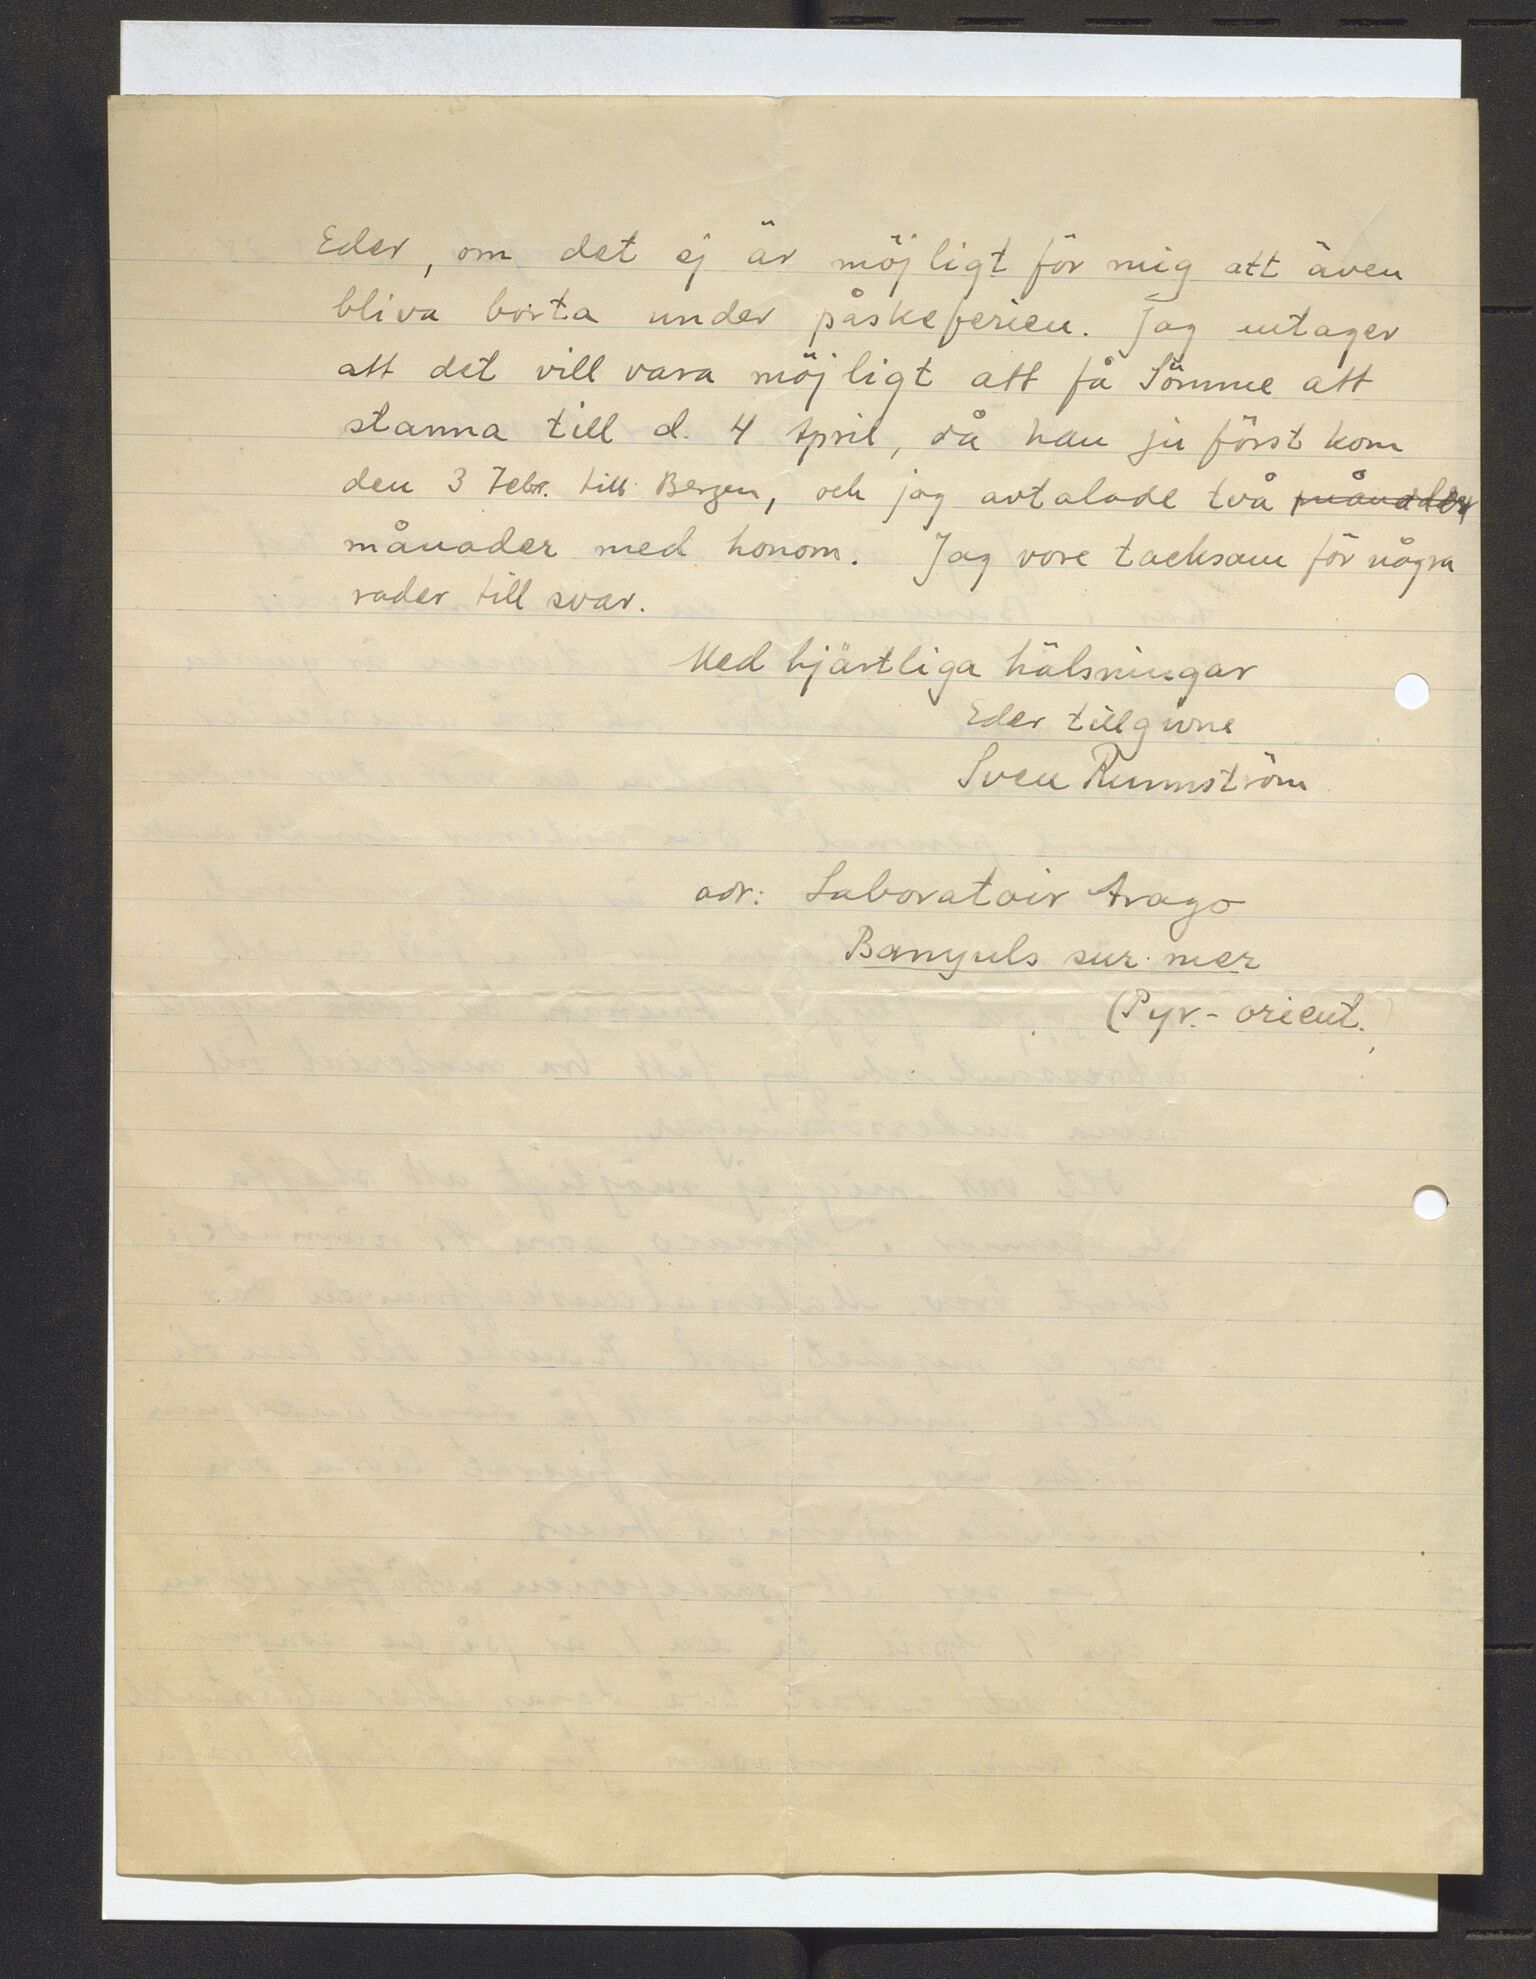 Eder, om det ej är möjligt för mig att även
bliva borta under påskeferien. Jag antager
att det vill vara möjligt att få Sömme att
stanna till d. 4 April, då han ju först kom
den 3 Febr. till Bergen, och jag avtalade två månader
månader med honom. Jag vore tacksam för några
rader till svar.
Med hjärtliga hälsningar
Eder tillgivne
Sven Runnström
adr: Laboratoir Arago
Banyuls sur mer
(Pyr.- orient.)